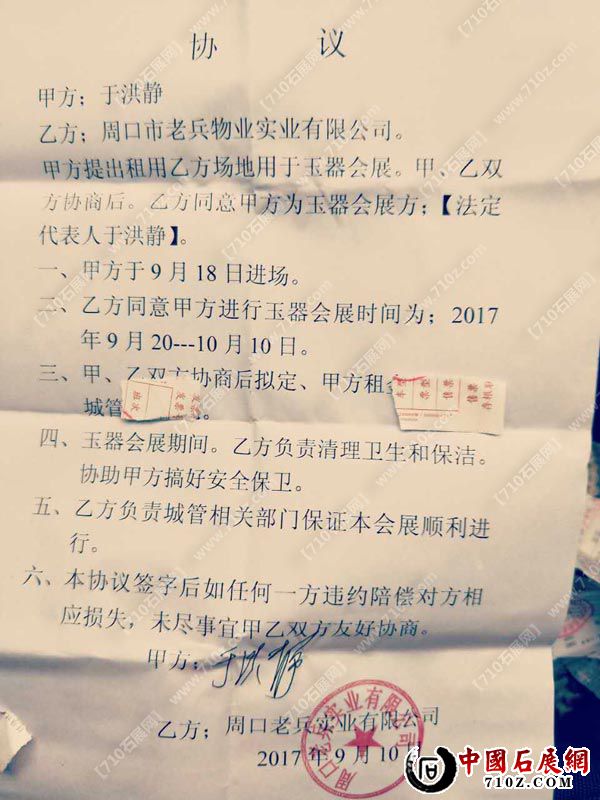 协 议
甲方；于洪静
乙方；周口市老兵物业实业有限公司。
甲方提出租用乙方场地用于玉器会展。甲、乙双
方协商后。乙方同意甲方为玉器会展方；【法定
代表人于洪静】。
一、甲方于9月18日进场。
二、乙方同意甲方进行玉器会展时间为；2017
年9月20---10月10日。
三、甲、乙双方协商后拟定、甲方租金
城管
四、玉器会展期间。乙方负责清理卫生和保洁。
协助甲方搞好安全保卫。
五、乙方负责城管相关部门保证本会展顺利进
行。
六、本协议签字后如任何一方违约陪偿对方相
应损失，未尽事宜甲乙双方友好协商。
甲方；于洪静
乙方；周口老兵实业有限公司
2017年9月10日
周口老兵实业有限公司
中國石展網
710Z.COM
【710石展网】
www.710z.com